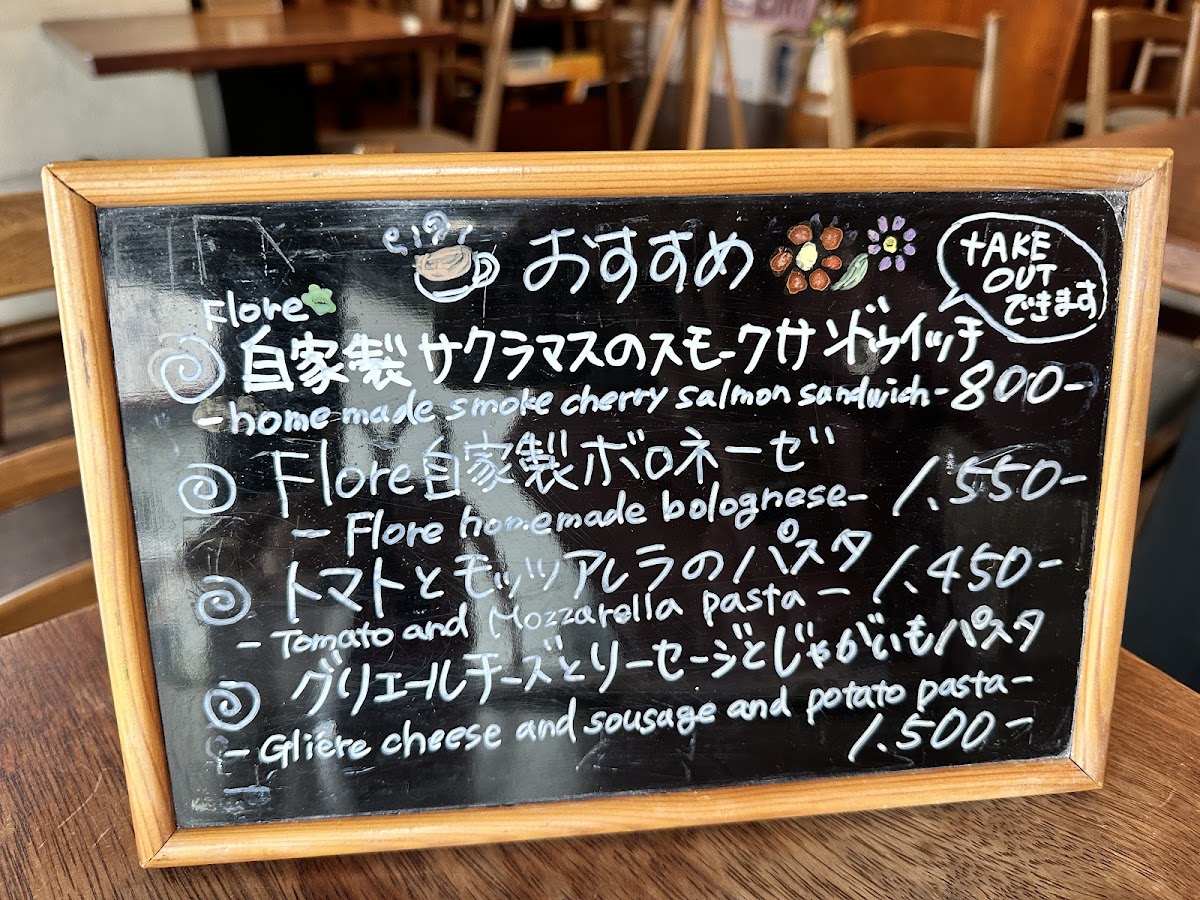 おすすめ
TAKE
OUT
できます
Flore
自家製サクラマスのスモークサンドゥイッチ
-home made smoke cherry salmon sandwich- 800-
Flore自家製ボロネーゼ
- Flore homemade bolognese- 1.550-
トマトとモッツァレラのパスタ 1.450-
- Tomato and Mozzarella pasta -
グリエールチーズとソーセージとじゃがいもパスタ
- Gliere cheese and sousage and potato pasta -
1.500-